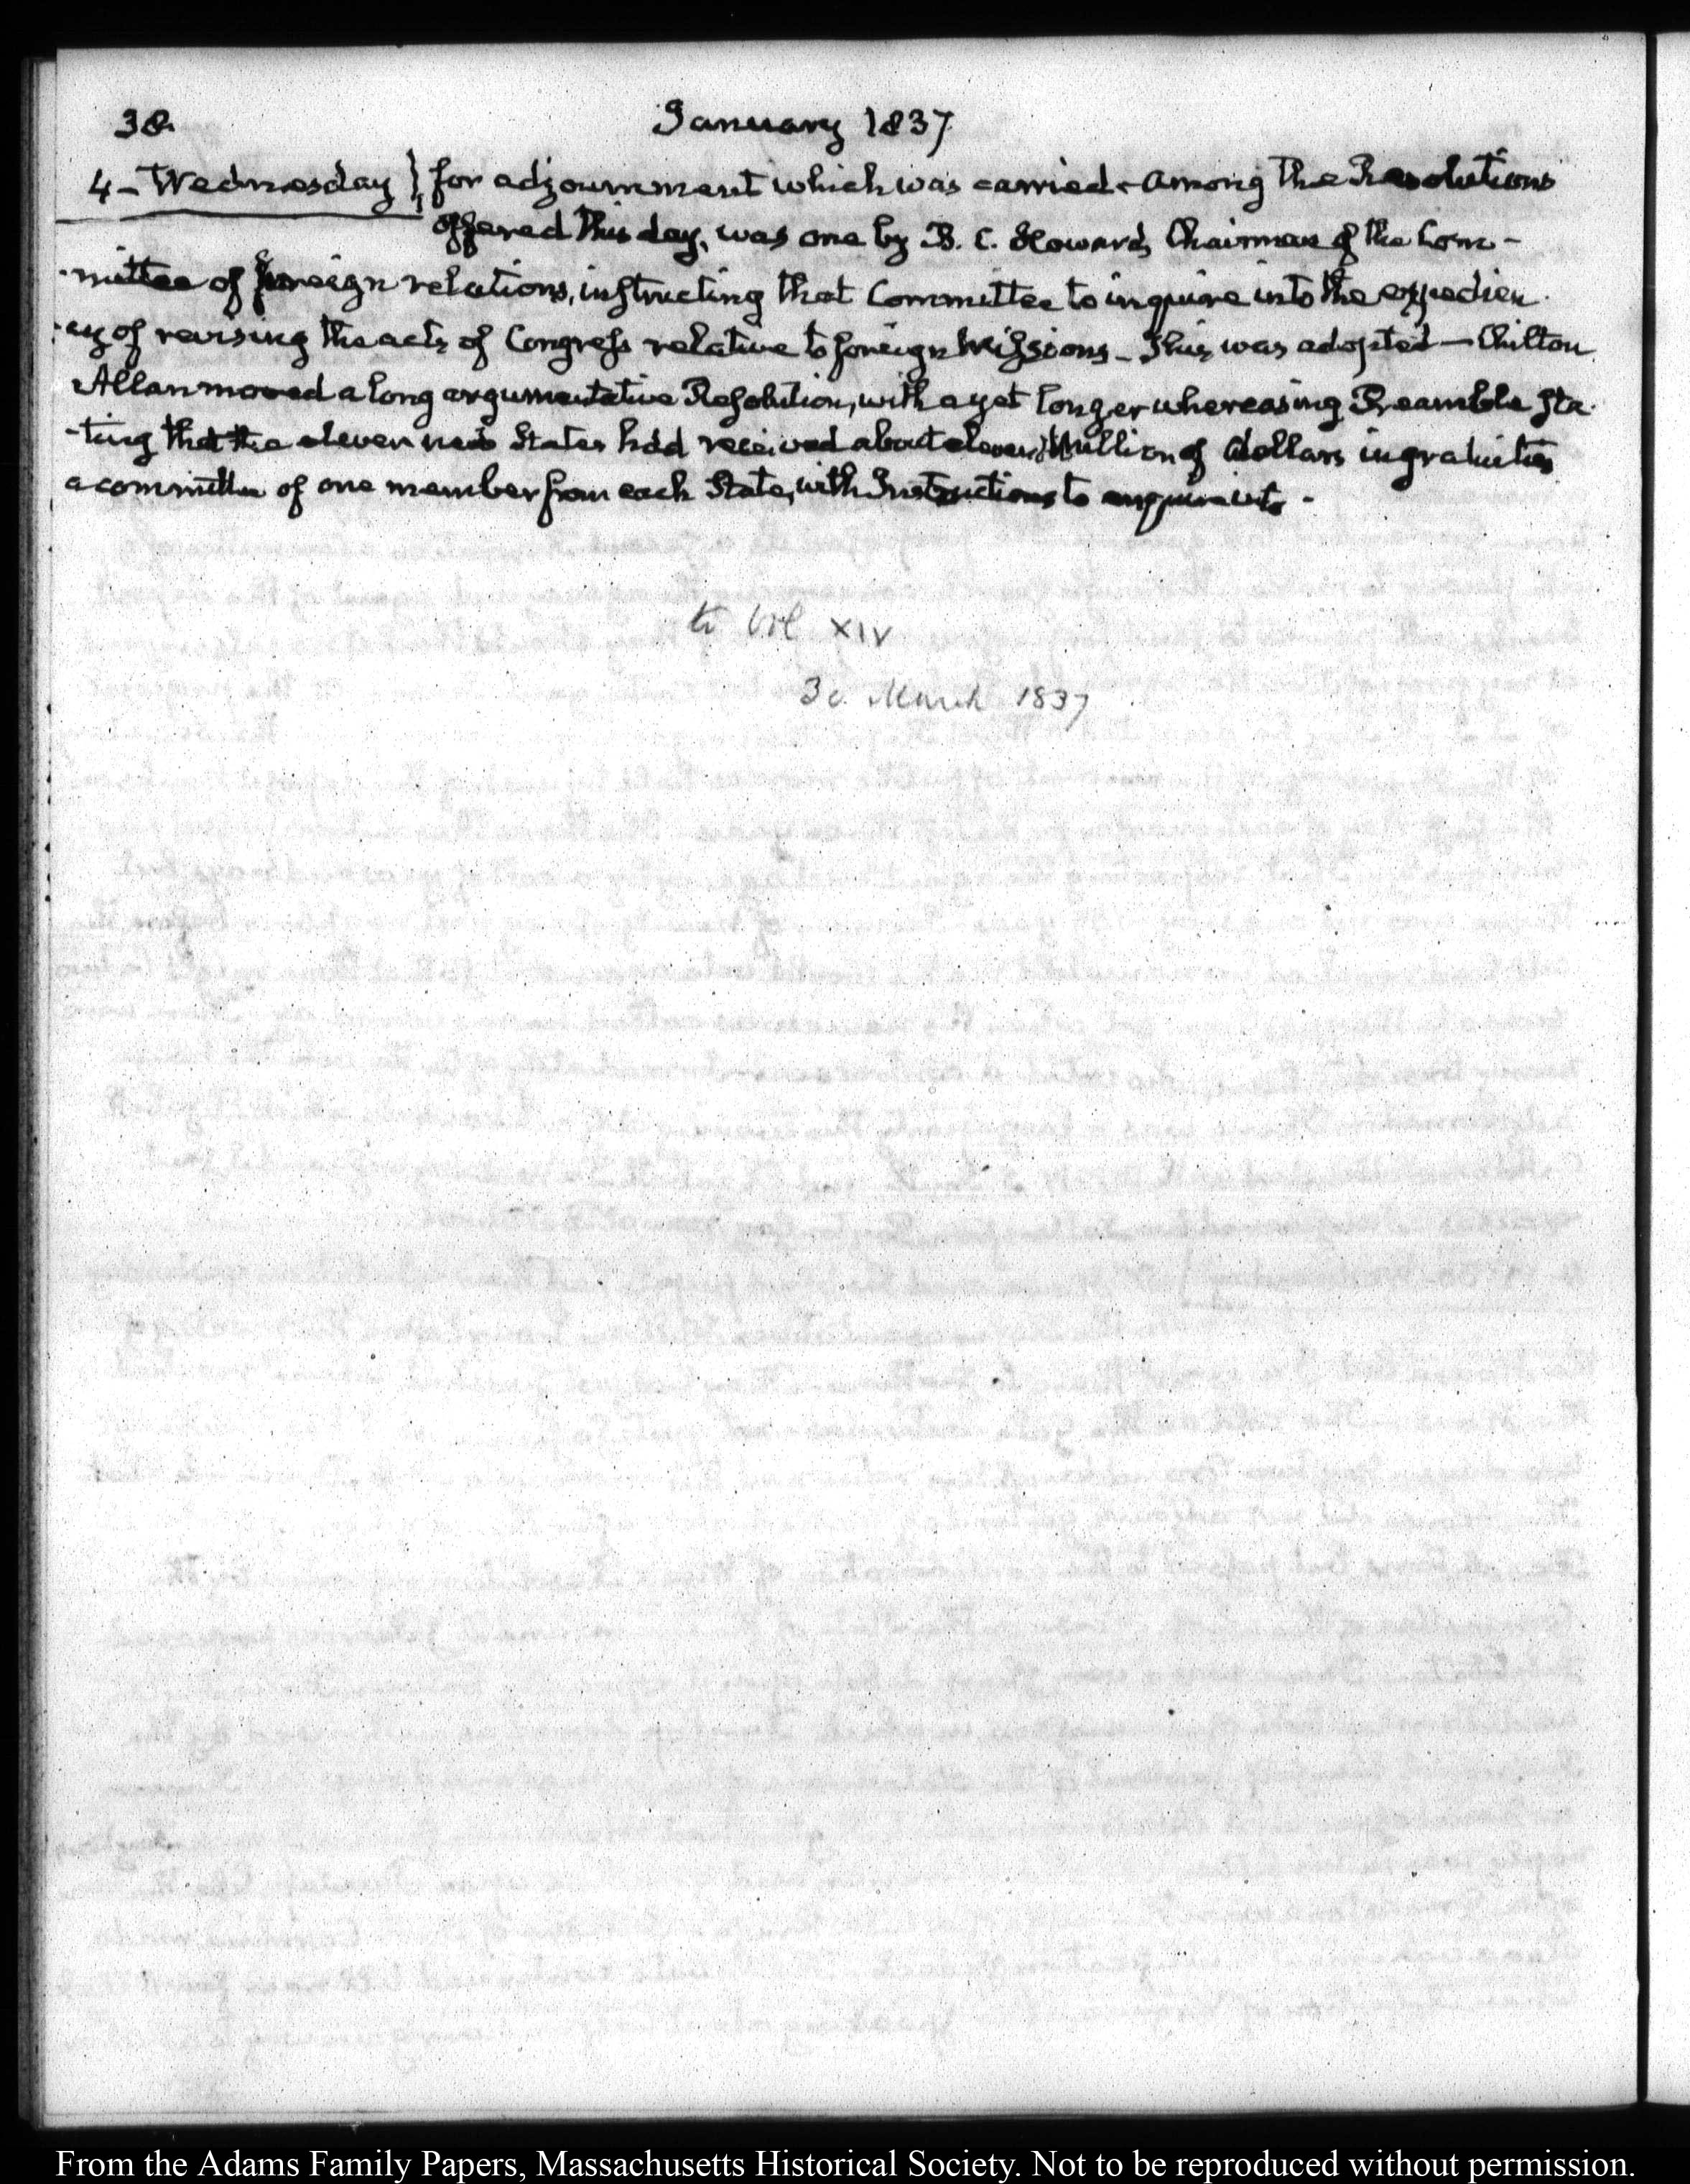 38.
January 1837.
4 - Wednesday } for adjournment which was carried - Among the Resolutions
offered this day, was one by B. C. Howard, Chairman of the Com-
-mittee of foreign relations, instructing that Committee to inquire into the expedien-
-cy of revising the acts of Congress relative to foreign Missions - This was adopted - Chilton
Allan moved a long argumentative Resolution, with a yet longer whereasing Preamble sta-
-ting that the eleven new States had received about eleven Million of dollars in gratuities
a committee of one member from each State, with Instructions to enquire into -
to Vol XIV
30. March 1837
From the Adams Family Papers, Massachusetts Historical Society. Not to be reproduced without permission.